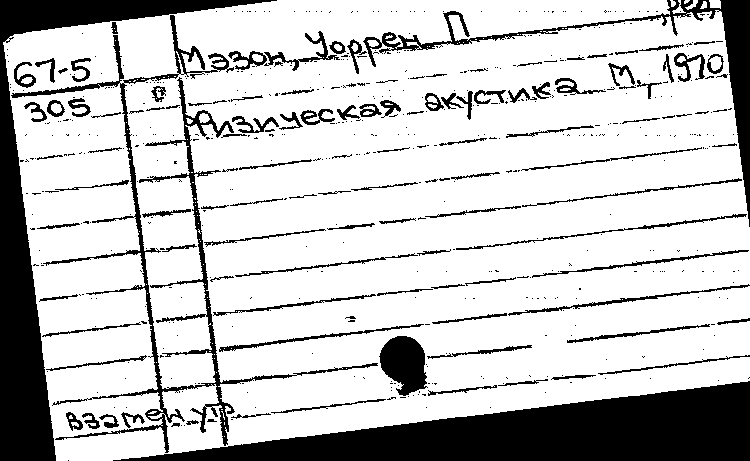 67-5 Мэзон, Уоррен П ,ред,
305 Физическая акустика М., 1970
взамен утр